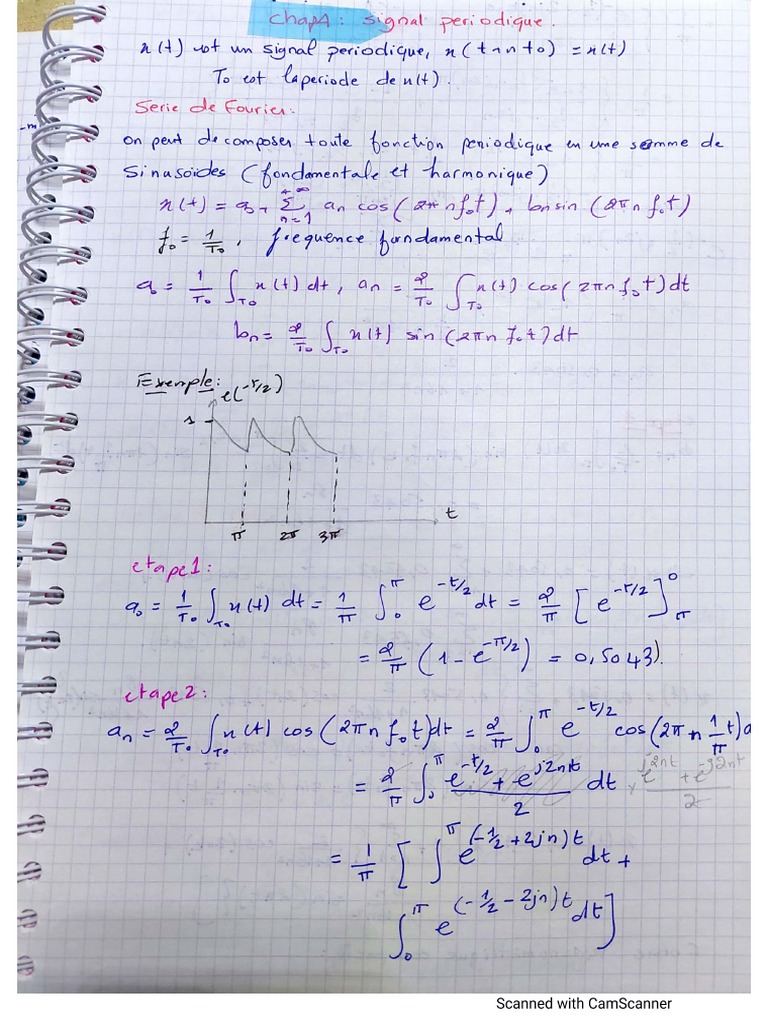 Chap1: signal periodique.
x(t) est un signal periodique, x(t+nT0) = x(t)
To est la periode de x(t).
Serie de Fourier:
on peut decomposer toute fonction periodique en une somme de
Sinusoides (fondamentale et harmonique)
x(t) = a0 + Σ_{n=1}^{+∞} an cos(2π n f0 t) + bn sin(2π n f0 t)
f0 = 1/T0, frequence fondamental
a0 = 1/T0 ∫_{T0} x(t) dt, an = 2/T0 ∫_{T0} x(t) cos(2πn f0 t) dt
bn = 2/T0 ∫_{T0} x(t) sin(2πn f0 t) dt
Exemple: e(-t/2)
1
t
π 2π 3π
etape1:
a0 = 1/T0 ∫_{T0} x(t) dt = 1/π ∫_0^π e^{-t/2} dt = 2/π [e^{-t/2}]_π^0
= 2/π (1 - e^{-π/2}) = 0,5043).
etape2:
an = 2/T0 ∫_{T0} x(t) cos(2πn f0 t) dt = 2/π ∫_0^π e^{-t/2} cos(2πn 1/π t) d
= 2/π ∫_0^π e^{-t/2} + e^{j2nt} / 2 dt × e^{j2nt} + e^{-j2nt} / 2
= 1/π [∫^π e^{(-1/2 + 2jn)t} dt +
∫_0^π e^{(-1/2 - 2jn)t} dt]
Scanned with CamScanner